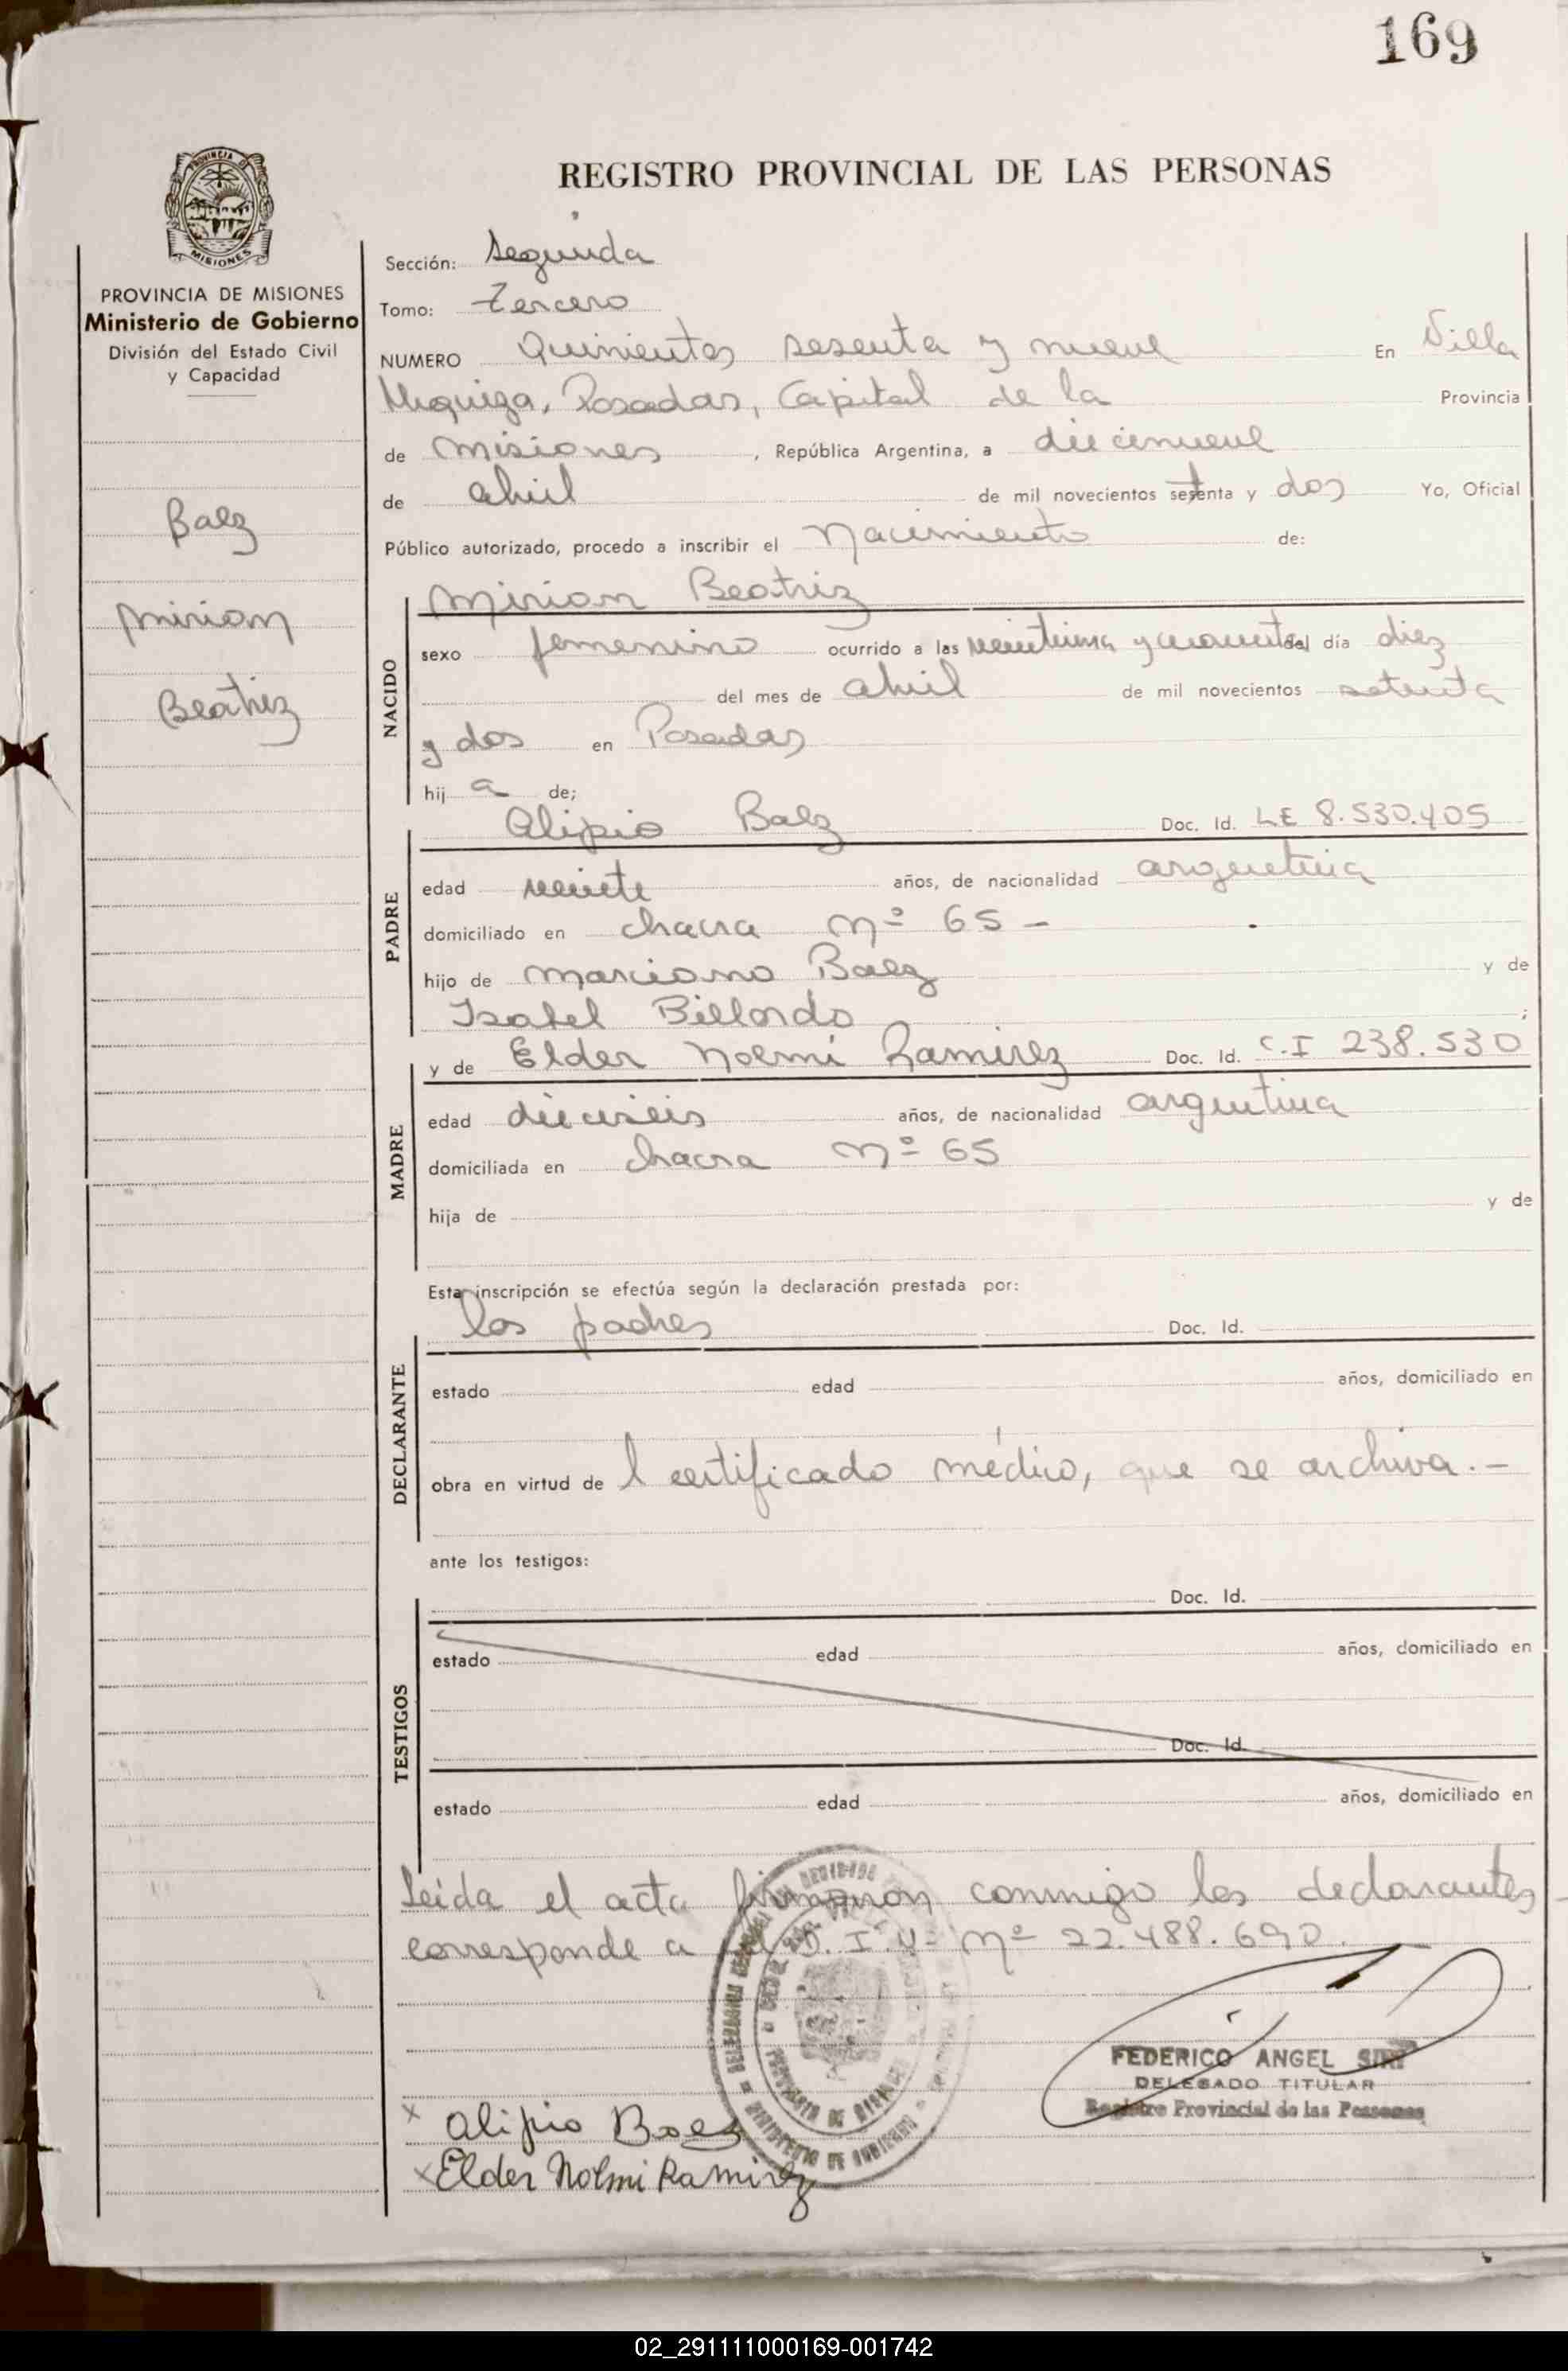 169
REGISTRO PROVINCIAL DE LAS PERSONAS
PROVINCIA DE
MISIONES
PROVINCIA DE MISIONES
Ministerio de Gobierno
División del Estado Civil
y Capacidad
Baez
Mirian
Beatriz
Sección: Segunda
Tomo: Tercero
NUMERO Quinientos sesenta y nueve En Villa
Urquiza, Posadas, Capital de la Provincia
de Misiones, República Argentina, a diecinueve
de abril de mil novecientos setenta y dos Yo, Oficial
Público autorizado, procedo a inscribir el Nacimiento de:
NACIDO
Mirian Beatriz
sexo femenino ocurrido a las veintiuna y cuarenta del día diez
del mes de abril de mil novecientos setenta
y dos en Posadas
hij a de;
PADRE
Alipio Baez Doc. Id. LE 8.530.405
edad veinte años, de nacionalidad argentina
domiciliado en chacra Nº 65 -
hijo de Marciano Baez y de
Isabel Billordo ;
MADRE
y de Elder Noemi Ramirez Doc. Id. C.I 238.530
edad dieciseis años, de nacionalidad argentina
domiciliada en chacra Nº 65
hija de y de
Esta inscripción se efectúa según la declaración prestada por:
DECLARANTE
los padres Doc. Id.
estado edad años, domiciliado en
obra en virtud de l certificado médico, que se archiva.-
ante los testigos:
TESTIGOS
Doc. Id.
estado edad años, domiciliado en
Doc. Id.
estado edad años, domiciliado en
Leida el acta firmaron conmigo los declarantes
corresponde a D.I.U- Nº 22.488.690.
PROVINCIA DE MISIONES
MINISTERIO DE GOBIERNO
FEDERICO ANGEL
DELEGADO TITULAR
Registro Provincial de las Personas
x Alipio Baez
x Elder Nolmi Ramirez
02_291111000169-001742